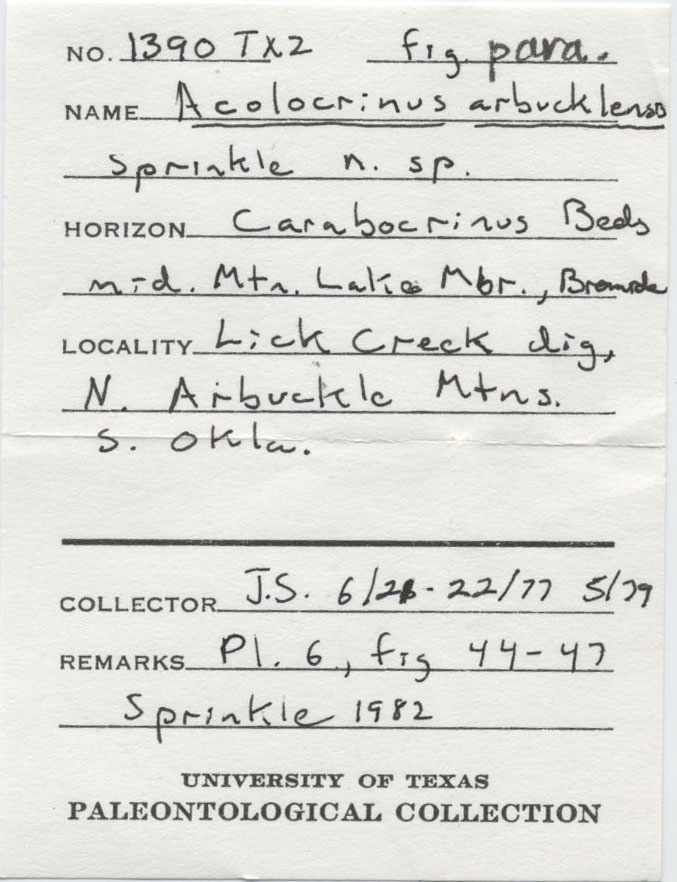 NO. 1390 TX2 fig. para.
NAME Acolocrinus arbucklensis
Sprinkle n. sp.
HORIZON Carabocrinus Beds
mid. Mtn. Lake Mbr., Bromide
LOCALITY Lick Creek dig,
N. Arbuckle Mtns.
S. Okla.
COLLECTOR J.S. 6/21-22/77 5/79
REMARKS Pl. 6, fig 44-47
Sprinkle 1982
UNIVERSITY OF TEXAS
PALEONTOLOGICAL COLLECTION